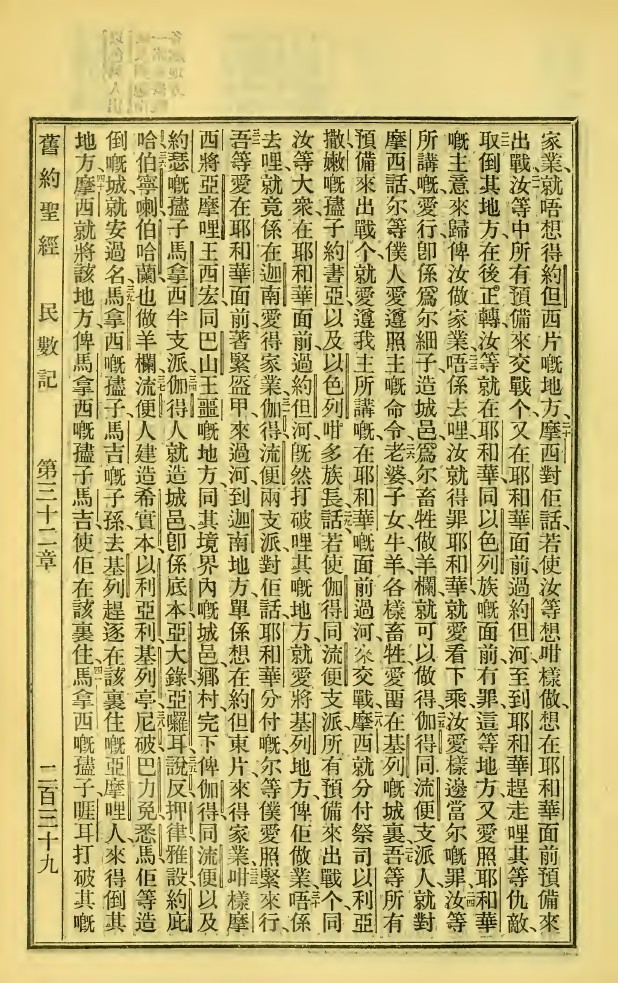 家業、就唔想得約但西片嘅地方、二十摩西對佢話、若使汝等想咁樣做、想在耶和華面前預備來
出戰、二一汝等中所有預備來交戰个、又在耶和華面前過約但河、至到耶和華趕走哩其等仇敵、
取倒其地方在後正轉、汝等就在耶和華同以色列族嘅面前冇罪、這等地方又愛照耶和華
嘅主意來歸俾汝做家業、二三唔係去哩、汝就得罪耶和華、就愛看下乘汝愛樣邊當尔嘅罪、二四汝等
所講嘅愛行、卽係爲尔細子造城邑、爲尔畜牲做羊欄、就可以做得、伽得同流便支派人就對
摩西話、尔等僕人愛遵照主嘅命令、二六老婆子女牛羊各樣畜牲愛畱在基列嘅城裏、二七吾等所有
預備來出戰个、就愛遵我主所講嘅、在耶和華嘅面前過河來交戰、二八摩西就分付祭司以利亞
撒、嫩嘅孻子約書亞、以及以色列咁多族長話、二九若使伽得同流便支派、所有預備來出戰个、同
汝等大衆在耶和華面前過約但河、旣然打破哩其嘅地方、就愛將基列地方俾佢做業、三十唔係
去哩、就竟係在迦南愛得家業、三一伽得流便兩支派對佢話、耶和華分付嘅、尔等僕愛照緊來行、
三二吾等愛在耶和華面前著緊盔甲來過河、到迦南地方、單係想在約但東片來得家業、三三咁樣摩
西將亞摩哩王西宏、同巴山王噩嘅地方、同其境界內嘅城邑鄉村、完下俾伽得同流便、以及
約瑟嘅孻子馬拿西半支派、三四伽得人就造城邑、卽係底本亞大錄、亞囉耳、三五說反押律雅設約庇
哈、三六伯寧喇、伯哈蘭、也做羊欄、三七流便人建造希實本、以利亞利、基列亭、三八尼破、巴力免、悉馬、佢等造
倒嘅城、就安過名、三九馬拿西嘅孻子馬吉嘅子孫、去基列趕逐在該裏住嘅亞摩哩人、來得倒其
地方、四十摩西就將該地方俾馬拿西嘅孻子馬吉、使佢在該裏住、四一馬拿西嘅孻子睚耳、打破其嘅
舊約聖經 民數記 第三十二章 二百三十九